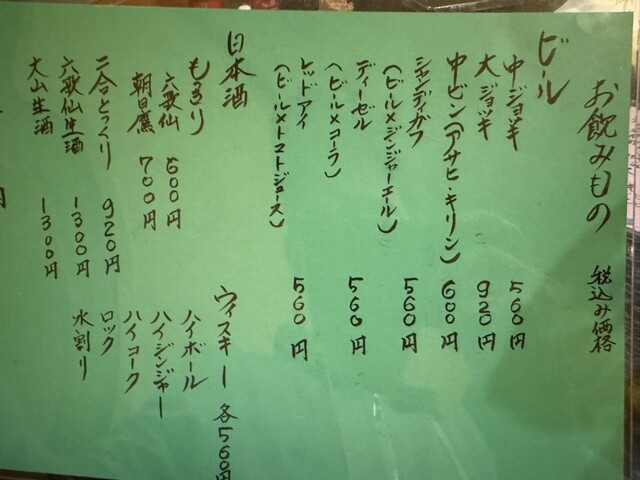 お飲みもの 税込み価格
ビール
中ジョッキ 560円
大ジョッキ 920円
中ビン(アサヒ・キリン) 600円
シャンディガフ
(ビール×ジンジャーエール) 560円
ディーゼル
(ビール×コーラ) 560円
レッドアイ
(ビール×トマトジュース) 560円
日本酒
もっきり
六歌仙 600円
朝日鷹 700円
二合とっくり 920円
六歌仙生酒 1300円
大山生酒 1300円
ウィスキー 各560円
ハイボール
ハイジンジャー
ハイコーク
ロック
水割り
円